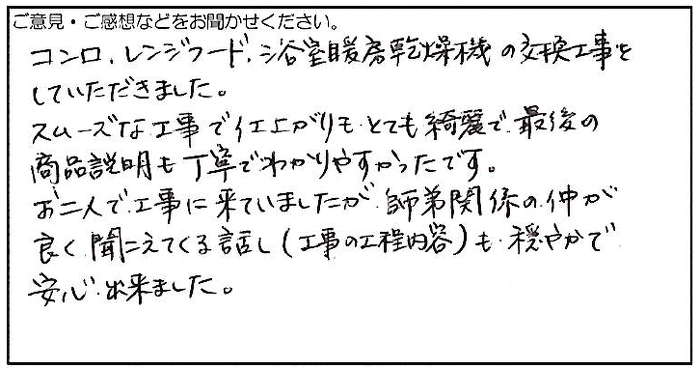 ご意見・ご感想などをお聞かせください。
コンロ、レンジフード、浴室暖房乾燥機の交換工事を
していただきました。
スムーズな工事で仕上がりも、とても綺麗で、最後の
商品説明も丁寧でわかりやすかったです。
お二人で工事に来ていましたが、師弟関係の仲が
良く、聞こえてくる話し(工事の工程内容)も、穏やかで
安心出来ました。